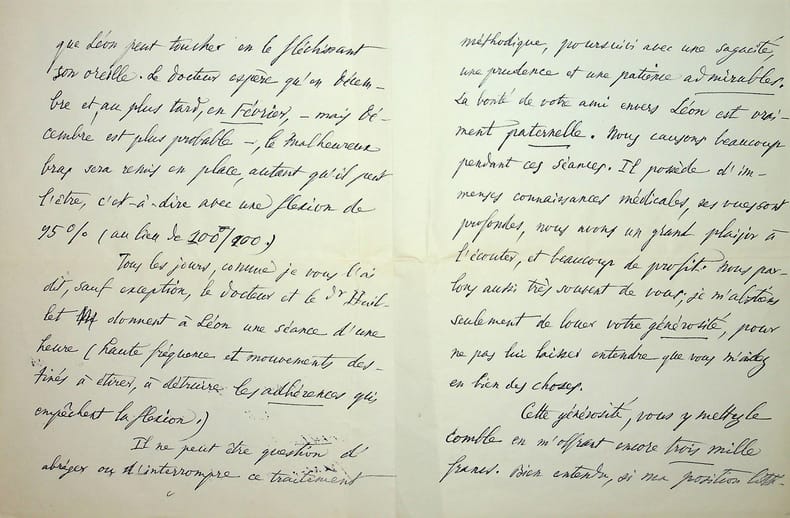 que Léon peut toucher en le fléchissant
son oreille. Le docteur espère qu'en Décem-
bre et, au plus tard, en Février, – mais Dé-
cembre est plus probable –, le malheureux
bras sera remis en place, autant qu'il peut
l'être, c'est-à-dire avec une flexion de
95% (au lieu de 100/100.)
Tous les jours, comme je vous l'ai
dit, sauf exception, le docteur et le Dr
donnent à Léon une séance d'une
heure (haute fréquence et mouvements des-
tinés à étirer, à détruire les adhérences qui
empêchent la flexion.)
Il ne peut être question d'
abréger ou d'interrompre ce traitement
méthodique, poursuivi avec une sagacité,
une prudence et une patience admirables.
La bonté de votre ami envers Léon est vrai-
ment paternelle. Nous causons beaucoup
pendant ces séances. Il possède d'im-
menses connaissances médicales, ses vues sont
profondes, nous avons un grand plaisir à
l'écouter, et beaucoup de profit. Nous par-
lons aussi très souvent de vous; je m'abstiens
seulement de louer votre générosité, pour
ne pas lui laisser entendre que vous m'aidez
en bien des choses.
Cette générosité, vous y mettez le
comble en m'offrant encore trois mille
francs. Bien entendu, si ma position litté-